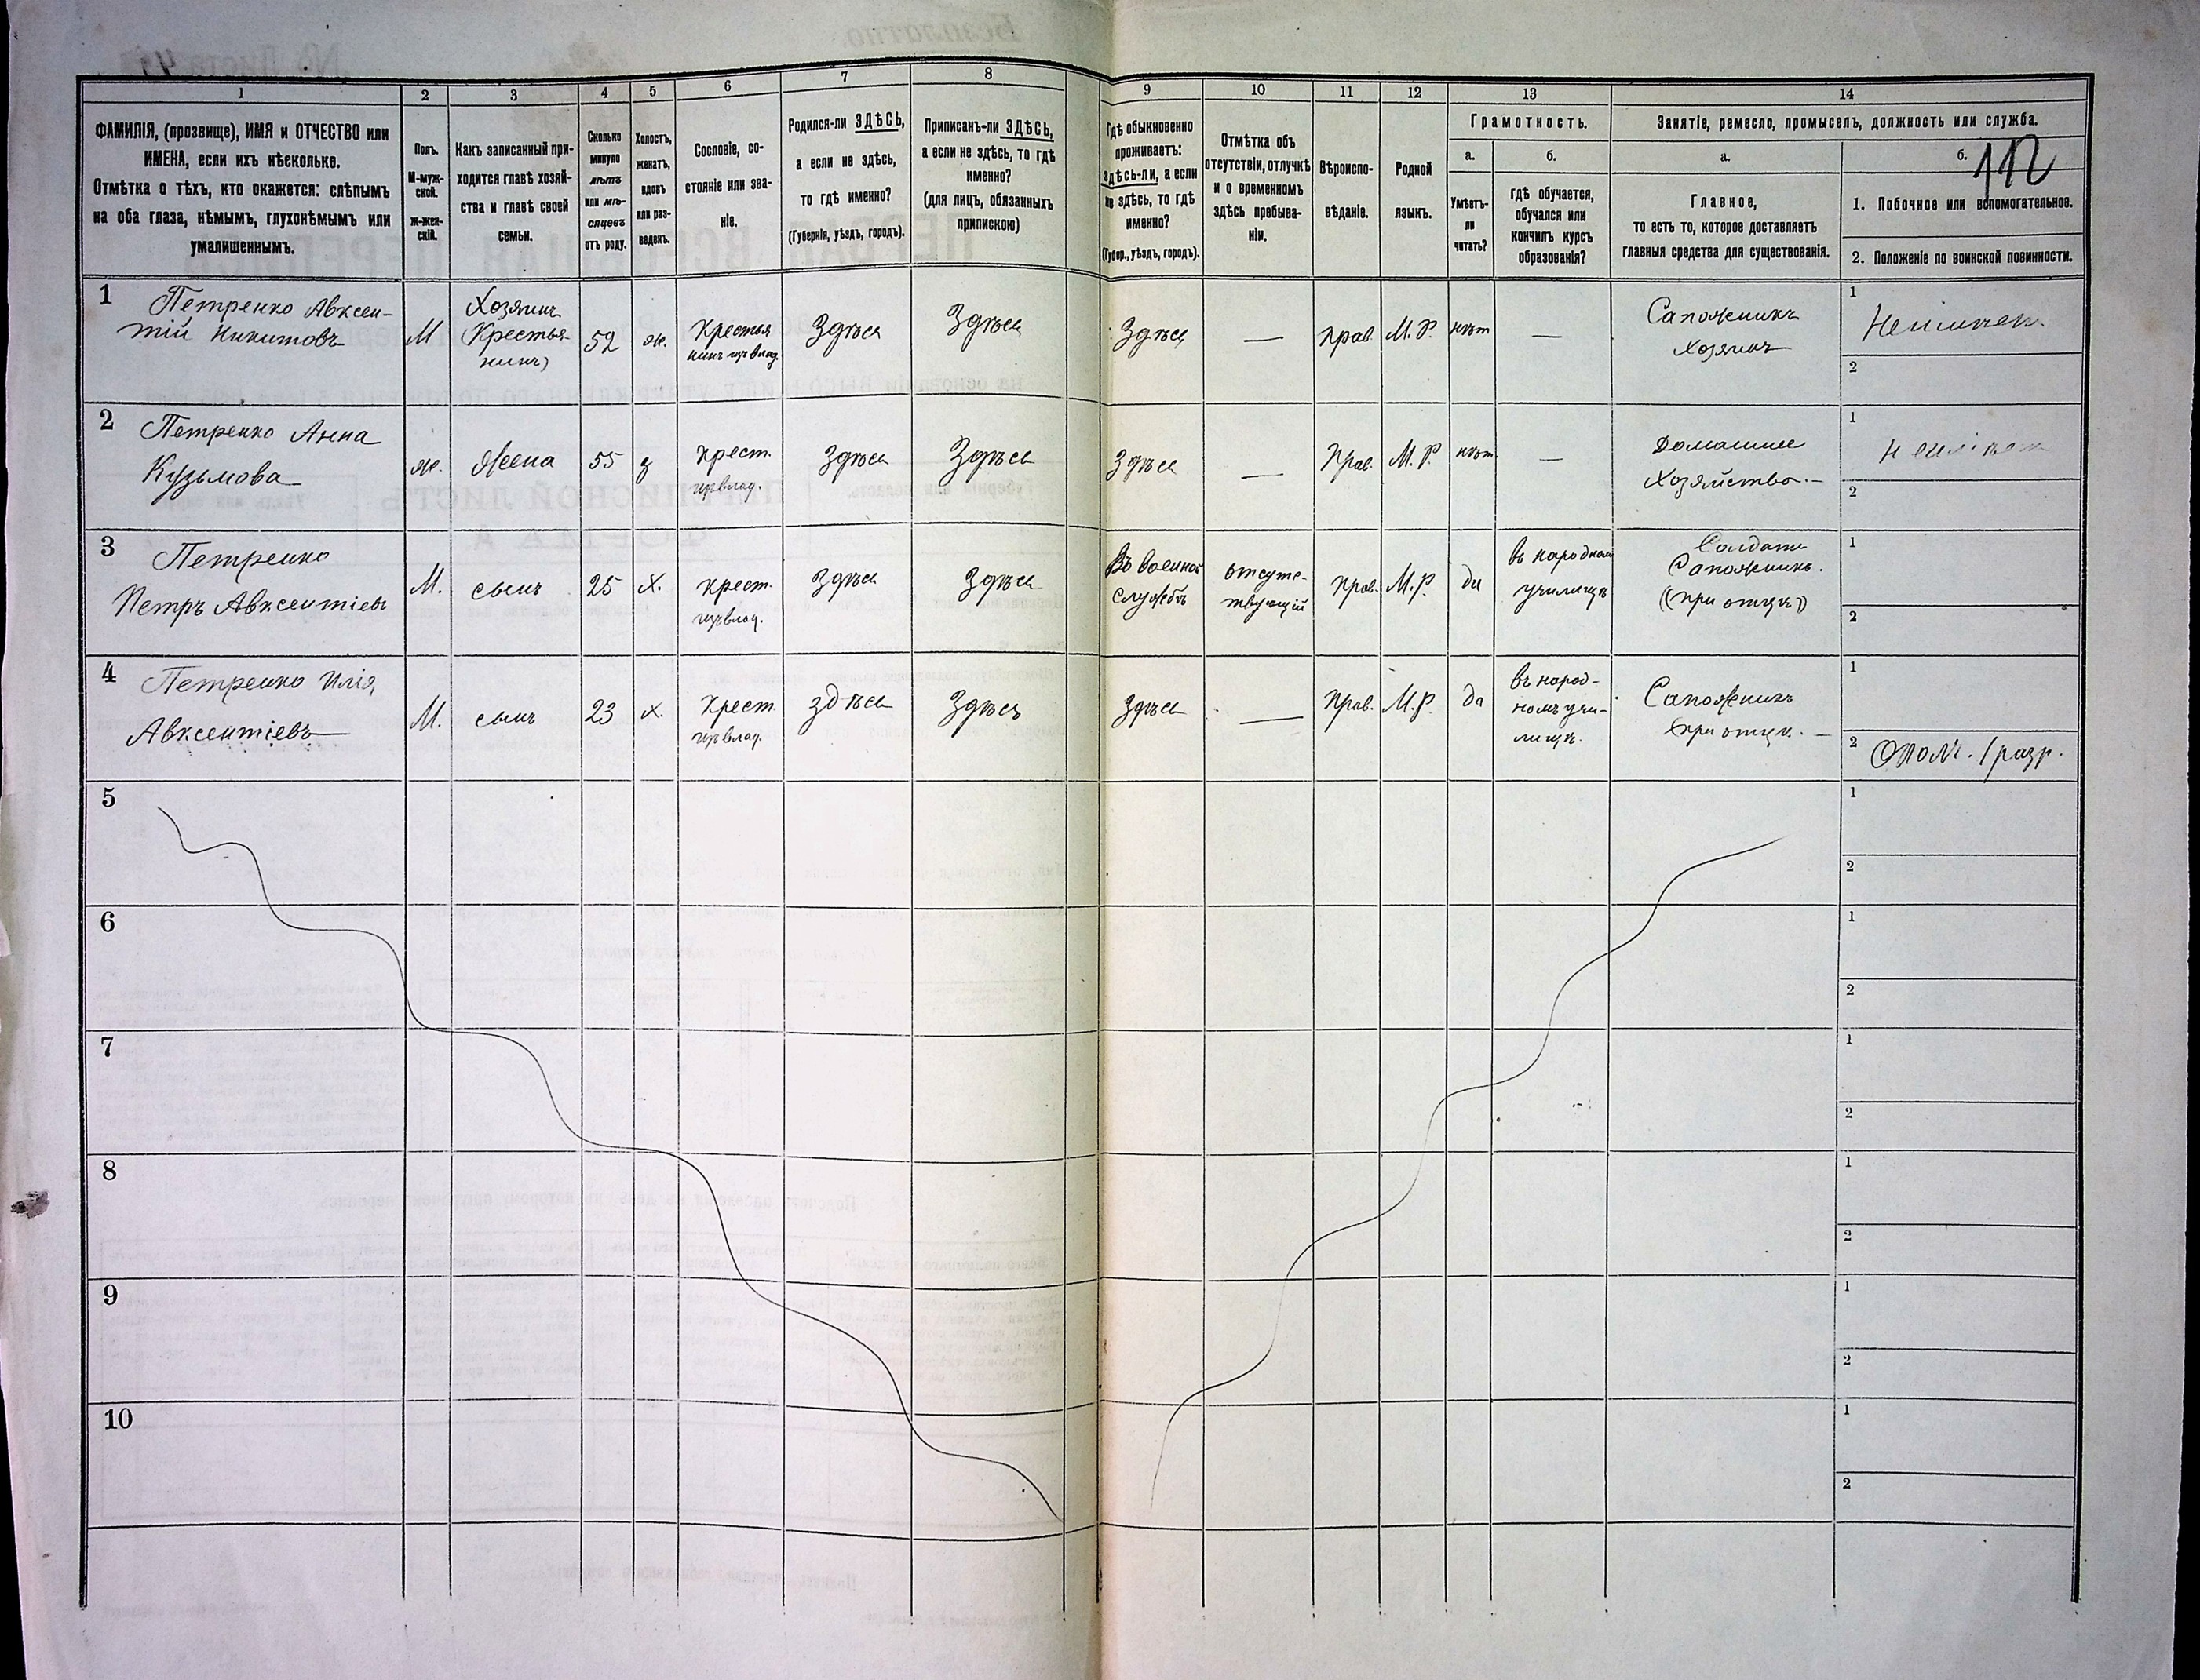 112
1
2
3
4
5
6
7
8
9
10
11
12
13
14
ФАМИЛІЯ, (прозвище), ИМЯ и ОТЧЕСТВО или
ИМЕНА, если ихъ нѣсколько.
Отмѣтка о тѣхъ, кто окажется: слѣпымъ
на оба глаза, нѣмымъ, глухонѣмымъ или
умалишеннымъ.
Полъ.
М-муж-
ской.
Ж-жен-
скій.
Какъ записанный при-
ходится главѣ хозяй-
ства и главѣ своей
семьи.
Сколько
минуло
лѣтъ
или мѣ-
сяцевъ
отъ роду.
Холостъ,
женатъ,
вдовъ
или раз-
веденъ.
Сословіе, со-
стояніе или зва-
ніе.
Родился-ли ЗДѢСЬ,
а если не здѣсь,
то гдѣ именно?
(Губернія, уѣздъ, городъ).
Приписанъ-ли ЗДѢСЬ,
а если не здѣсь, то гдѣ
именно?
(для лицъ, обязанныхъ
припискою)
Гдѣ обыкновенно
проживаетъ:
здѣсь-ли, а если
не здѣсь, то гдѣ
именно?
(Губер., уѣздъ, городъ).
Отмѣтка объ
отсутствіи, отлучкѣ
и о временномъ
здѣсь пребыва-
ніи.
Вѣроиспо-
вѣданіе.
Родной
языкъ.
Грамотность.
а.
Умѣетъ-
ли
читать?
б.
гдѣ обучается,
обучался или
кончилъ курсъ
образованія?
Занятіе, ремесло, промыселъ, должность или служба.
а.
Главное,
то есть то, которое доставляетъ
главныя средства для существованія.
б.
1. Побочное или вспомогательное.
2. Положеніе по воинской повинности.
1
Петренко Авксен-
тій Никитовъ
М
Хозяинъ
(Крестья-
нинъ)
52
ж.
Крестья
нинъ изъ влад.
Здѣсь
Здѣсь
Здѣсь
—
Прав.
М. Р.
нѣт
—
Сапожникъ
Хозяинъ
1
2
2
Петренко Анна
Кузьмова
ж.
Жена
55
з
Крест.
изъ влад.
Здѣсь
Здѣсь
Здѣсь
—
Прав.
М. Р.
нѣт.
—
Домашнее
Хозяйство.—
1
2
3
Петренко
Петръ Авксентіевъ
М.
сынъ
25
Х.
крест.
изъ влад.
Здѣсь
Здѣсь
Въ военной
службѣ
отсутс-
твующій
Прав.
М. Р.
да
въ народном
училищѣ
Солдатъ
Сапожникъ.
(при отцѣ)
1
2
4
Петренко Илія
Авксентіевъ
М.
сынъ
23
х.
Крест.
изъ влад.
здѣсь
Здѣсь
Здѣсь
—
Прав.
М. Р.
да
въ народ-
номъ учи-
лищѣ.
Сапожникъ
при отцѣ. —
1
2 Ополч. 1 разр.
5
1
2
6
1
2
7
1
2
8
1
2
9
1
2
10
1
2